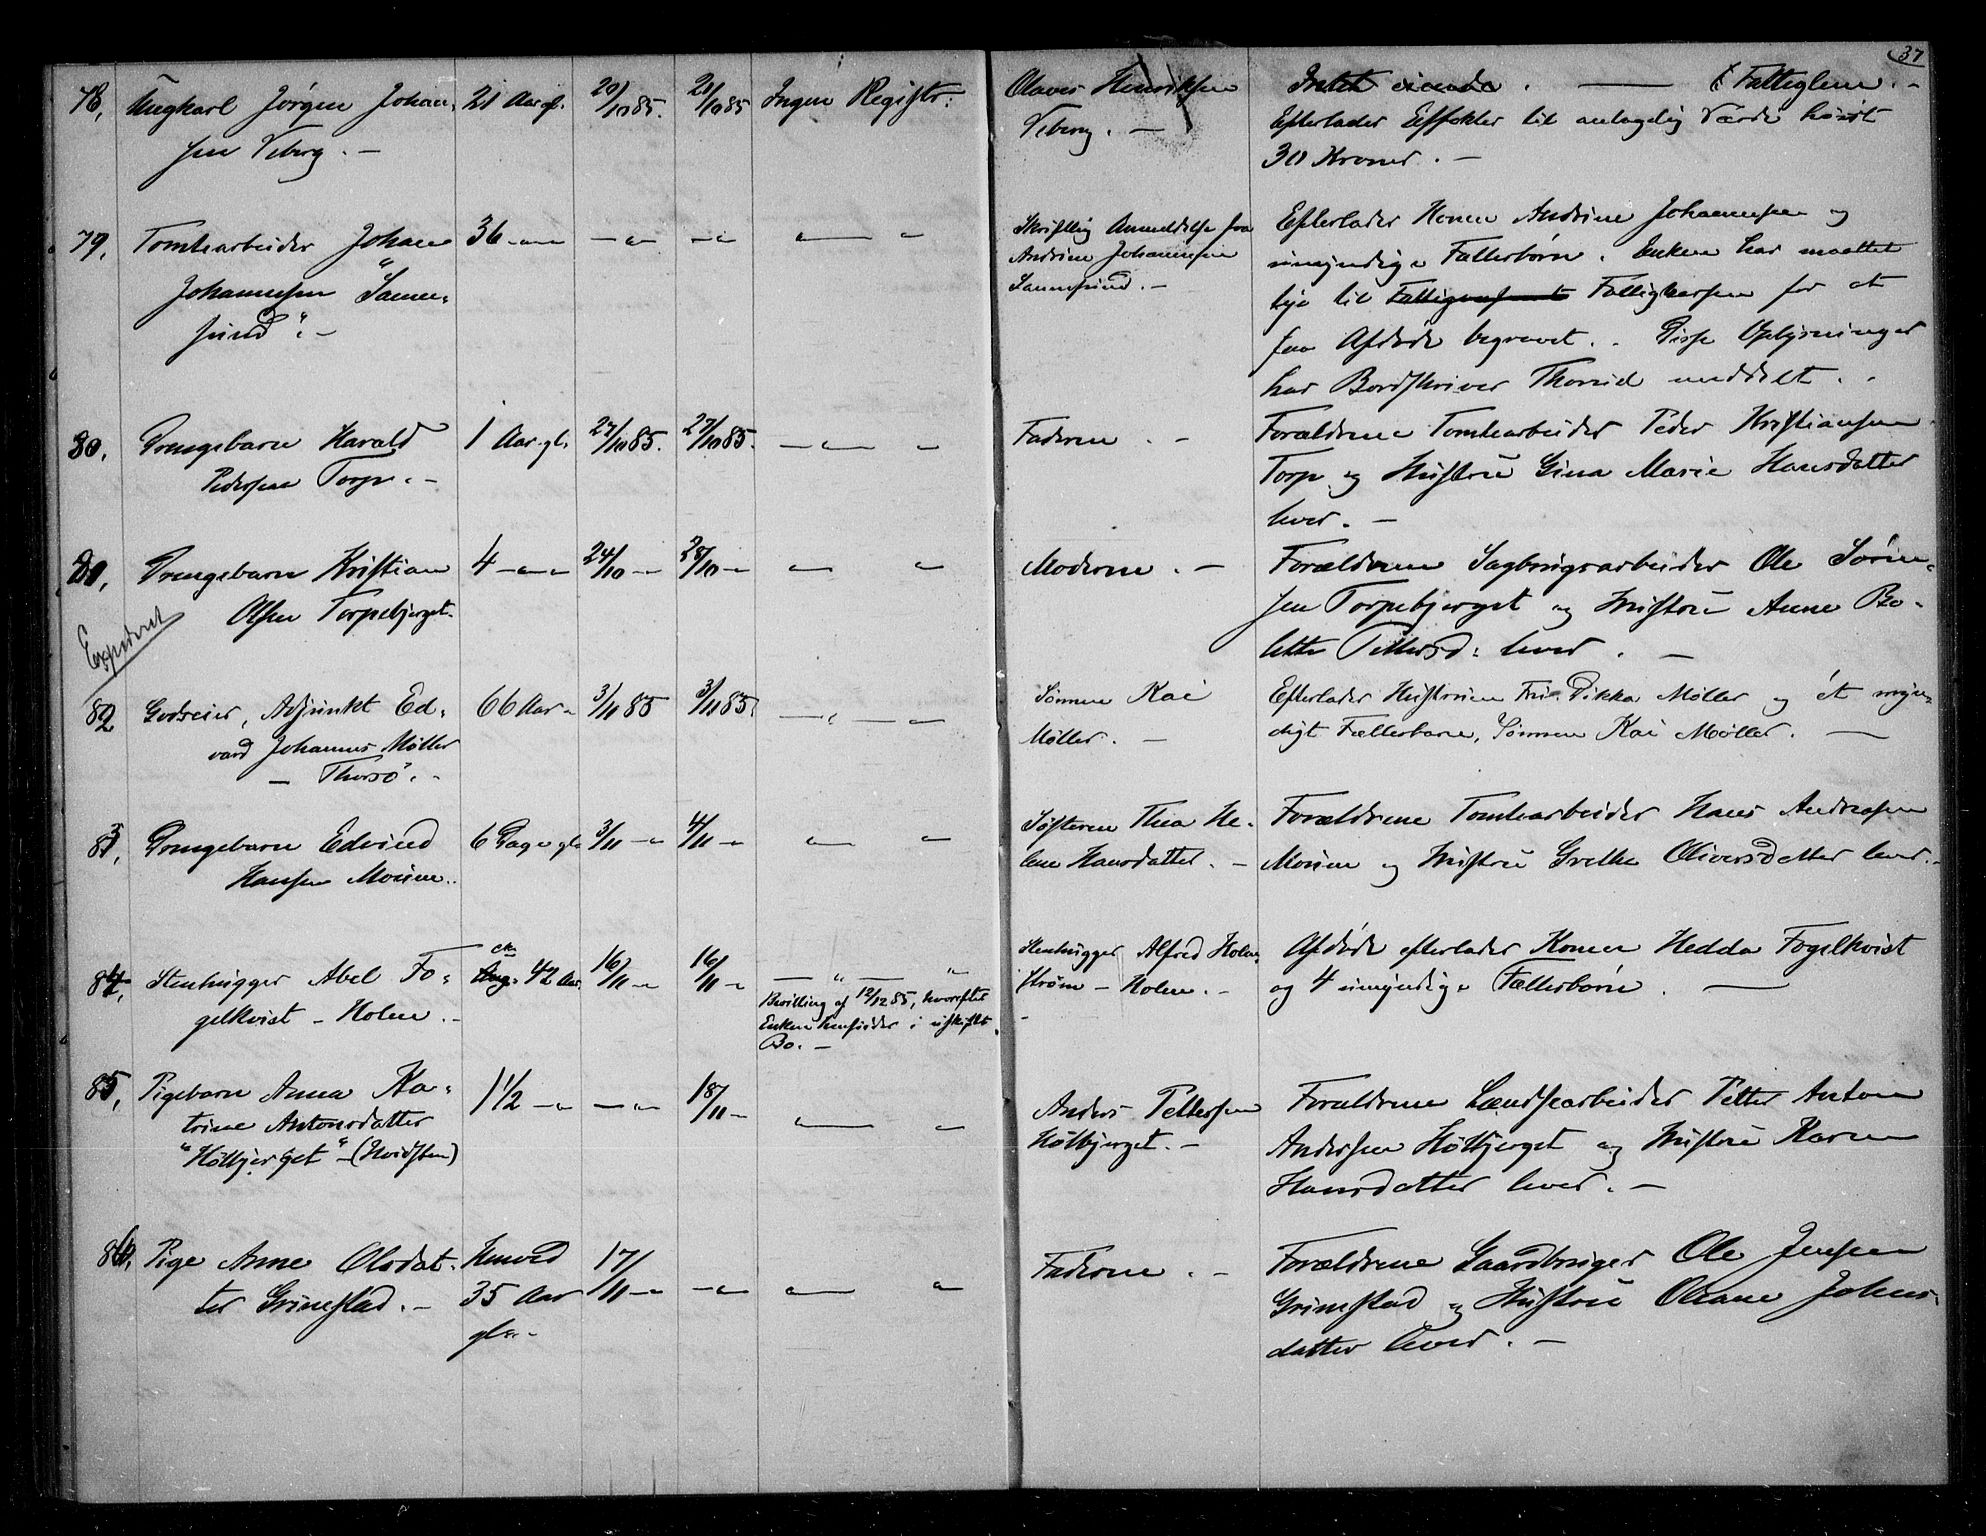 37
78, Ungkarl Jörgen Johan- 21 Aar gl. 20/10 85. 21/10 85 Ingen Registr:
sen Viberg. —
Olaves Henriksen
Viberg. —
Intet eiende. — Fattiglem. -
Efterlader Effekter til antagelig Værdi höist
30 Kroner. —
79, Tomtearbeider Johan 36 — " — — " — — " — " "
Johannesen "Sann-
sund". —
Skriftlig Anmeldelse fra
Andrine Johannesen
Sannesund. —
Efterlader Konen Andrine Johannesen og
umyndige Fællesbörn. Enken har maattet
ty til Fattigvæsenet Fattigkassen for at
faa Afdöde begravet. . Disse Oplysninger
har Bordskriver Thorud meddelt. .
80, Drengebarn Harald 1 Aar gl. 27/10 85. 27/10 85. — " — "
Pedersen Torp. -
Faderen. -
Forældrene Tomtearbeider Peder Kristiansen
Torp og Hustru Gina Marie Hansdatter
lever. —
81, Drengebarn Kristian 4 — " — 24/10 — " 28/10 — " " "
Olsen Torpebjerget.
Moderen. —
Forældrene Sagbrugsarbeider Ole Sören-
sen Torpebjerget og Hustru Anne Bo-
lette Pettersd: lever. —
Expederet
82 Godseier, Adjunkt Ed- 66 Aar " 3/11 85 3/11 85. — " — "
vard Johannes Möller
— Thorsö. -
Sönnen Kai
Möller. —
Efterlader Hustruen Fru Dikka Möller og ét myn-
digt Fællesbarn, Sönnen Kai Möller. —
83, Drengebarn Edvind 6 Dage gl. 3/11 — " 4/11 — " " "
Hansen Moum..
Söstern Thea He-
lene Hansdatter. —
Forældrene Tomtearbeider Hans Andreasen
Moum og Hustru Grethe Oliversdatter lever. -
84, Stenhugger Abel Fo- ca 42 Aar. 16/11 — " 16/11 — " — " — "
gelkvist - Holm. -
Bevilling af 12/12 85, hvorefter
Enken hensidder i uskiftet
Bo. —
Stenhugger Alfred Holm-
ström - Holm. -
Afdöde efterlader Konen Hedda Fogelkvist
og 4 umyndige Fællesbörn. —
85, Pigebarn Anna Ka- 1 1/2 — " — " 18/11 — " " "
trine Antonsdatter
"Hölbjerget" - (Hvidsten)
Anders Pettersen
Hölbjerget. —
Forældrene Lændsearbeider Petter Anton
Andersen Hölbjerget og Hustru Karen
Hansdatter lever. —
86, Pige Anne Olsdat- Henved 17/11 — " — " " "
ter Grimstad. — 35 Aar
gl. -
Faderen. —
Forældrene Gaardbruger Ole Jensen
Grimstad og Hustru Oleane Johns-
datter lever. —